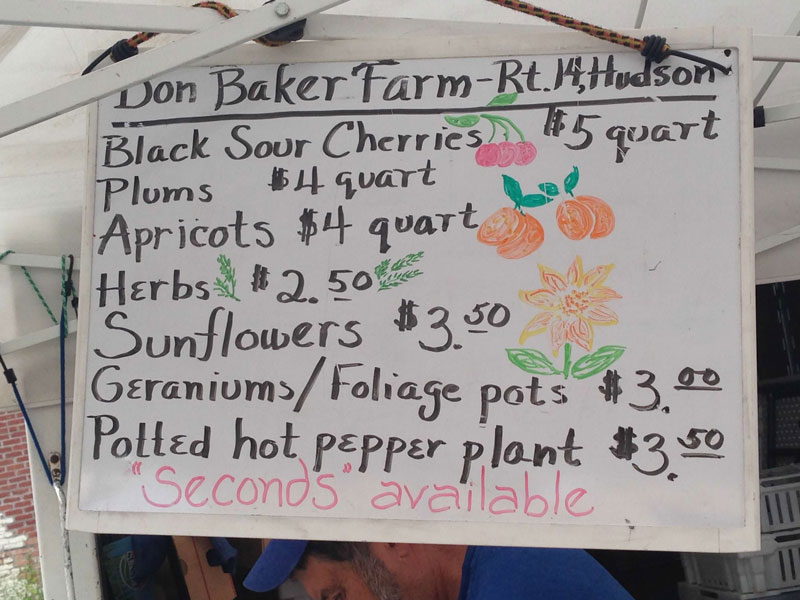 Don Baker Farm - Rt. 14, Hudson
Black Sour Cherries $5 quart
Plums $4 quart
Apricots $4 quart
Herbs $2.50
Sunflowers $3.50
Geraniums/Foliage pots $3.00
Potted hot pepper plant $3.50
"Seconds" available